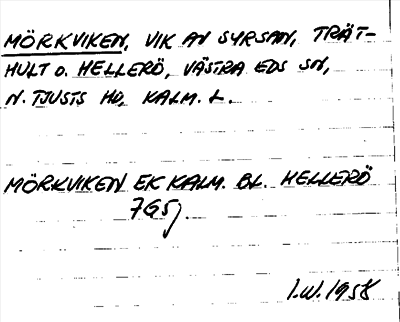 MÖRKVIKEN, VIK AV SYRSAN, TRÄT-
HULT O. HELLERÖ, VÄSTRA EDS SN,
N. TJUSTS HD, KALM. L.
MÖRKVIKEN EK KALM. BL. HELLERÖ
7G5j.
I.W. 1958